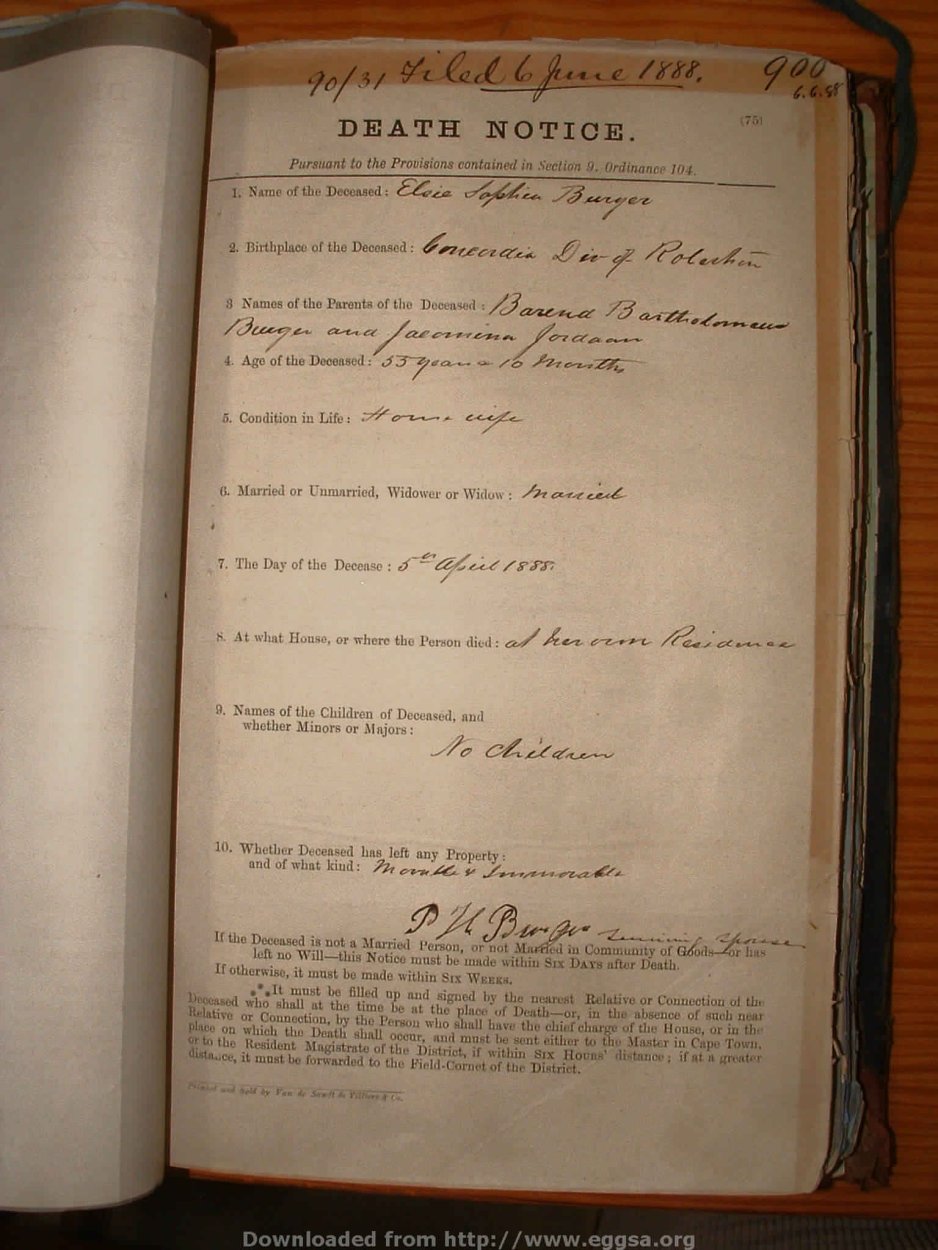 90/31 Filed 6 June 1888. 900
6.6.88
(75)
DEATH NOTICE.
Pursuant to the Provisions contained in Section 9. Ordinance 104.
1. Name of the Deceased: Elsie Sophia Burger
2. Birthplace of the Deceased: Concordia Div of Robertson
3 Names of the Parents of the Deceased: Barend Bartholomeus
Burger and Jacomina Jordaan
4. Age of the Deceased: 55 years 10 Months
5. Condition in Life: House wife
6. Married or Unmarried, Widower or Widow: Married
7. The Day of the Decease: 5th April 1888.
8. At what House, or where the Person died: at her own Residence
9. Names of the Children of Deceased, and
whether Minors or Majors:
No Children
10. Whether Deceased has left any Property:
and of what kind: Movable & Immovable
P H Burger Surviving Spouse
If the Deceased is not a Married Person, or not Married in Community of Goods—or has
left no Will—this Notice must be made within SIX DAYS after Death.
If otherwise, it must be made within SIX WEEKS.
*** It must be filled up and signed by the nearest Relative or Connection of the
Deceased who shall at the time be at the place of Death—or, in the absence of such near
Relative or Connection, by the Person who shall have the chief charge of the House, or in the
place on which the Death shall occur, and must be sent either to the Master in Cape Town,
or to the Resident Magistrate of the District, if within SIX HOURS' distance; if at a greater
distance, it must be forwarded to the Field-Cornet of the District.
Printed and Sold by Van de Sandt de Villiers & Co.
Downloaded from http://www.eggsa.org